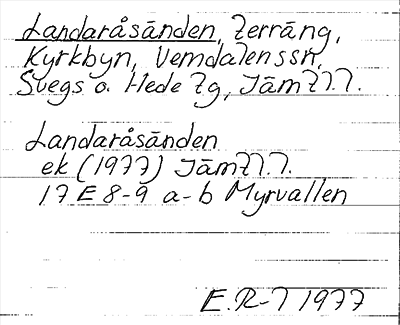 Landaråsänden, terräng,
Kyrkbyn, Vemdalens sn,
Svegs o. Hede tg, Jämtl.l.
Landaråsänden
ek (1977) Jämtl.l.
17 E 8-9 a-b Myrvallen
E.R-l 1977